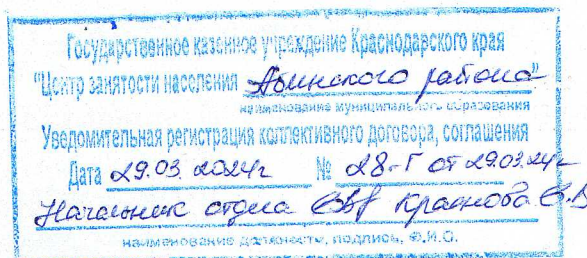 Государственное казенное учреждение Краснодарского края
"Центр занятости населения Абинского района"
наименование муниципального образования
Уведомительная регистрация коллективного договора, соглашения
Дата 29.03.2024г № 28-Г от 29.03.24г
Начальник отдела Краснова
наименование должности, подпись, Ф.И.О.